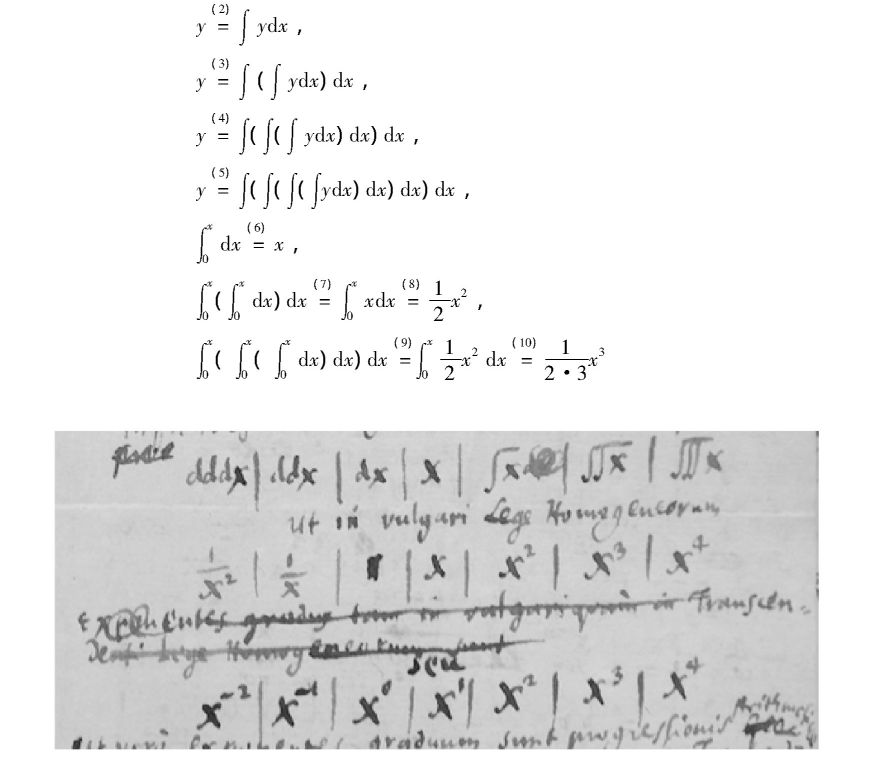 y (2)= ∫ ydx ,
y (3)= ∫ ( ∫ ydx) dx ,
y (4)= ∫( ∫( ∫ ydx) dx) dx ,
y (5)= ∫( ∫( ∫( ∫ydx) dx) dx) dx ,
∫₀ˣ dx (6)= x ,
∫₀ˣ( ∫₀ˣ dx) dx (7)= ∫₀ˣ xdx (8)= 1/2 x² ,
∫₀ˣ( ∫₀ˣ( ∫₀ˣ dx) dx) dx (9)= ∫₀ˣ 1/2 x² dx (10)= 1/(2·3) x³
dddx | ddx | dx | x | ∫x | ∫∫x | ∫∫∫x
Ut in vulgari Lege Homogeneorum
1/x² | 1/x | 1 | x | x² | x³ | x⁴
Exponentes gradus tam in vulgari quam in Transcen-
Lege Homogeneorum sunt
seu
x⁻² | x⁻¹ | x⁰ | x¹ | x² | x³ | x⁴
exponentes graduum sunt progressionis Arithmeti